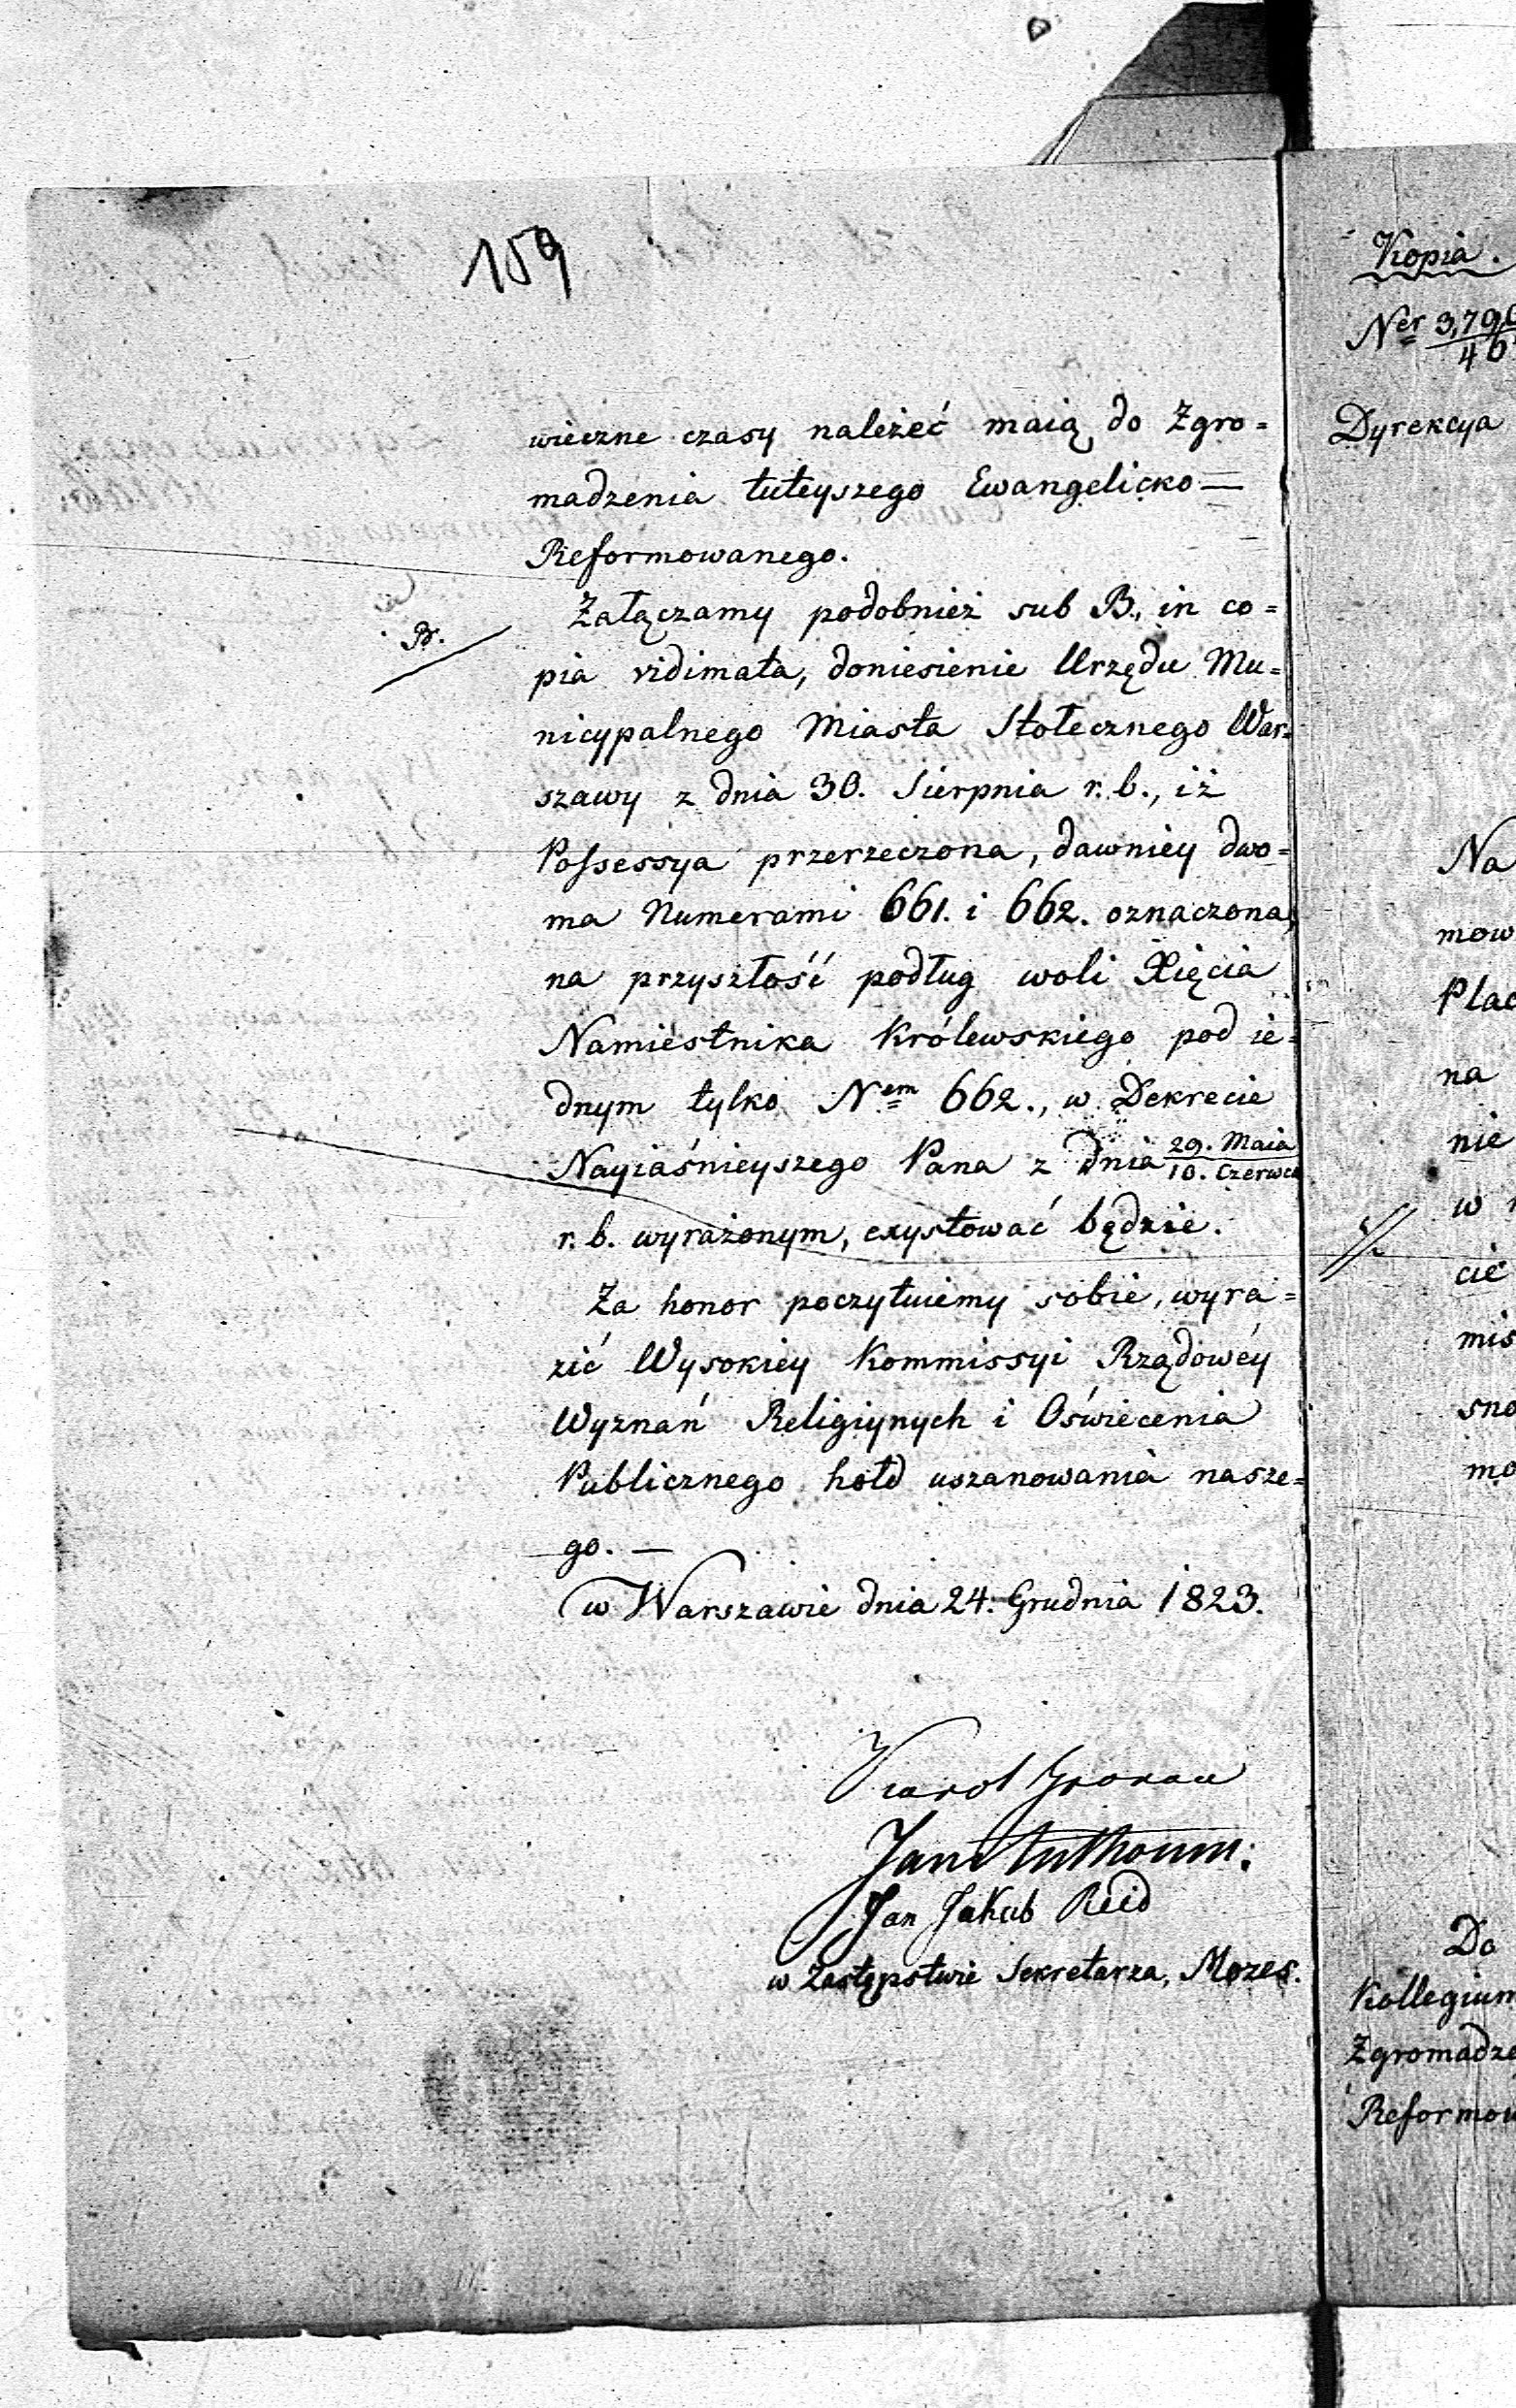 159
wieczne czasy należeć maią do Zgro=
madzenia tuteyszego Ewangelicko=
Reformowanego.
B.
Załączamy podobnież sub B., in co=
pia vidimata, doniesienie Urzędu Mu=
nicypalnego Miasta Stołecznego War=
szawy z dnia 30. Sierpnia r. b., iż
Possessya przerzeczona, dawniey dwo=
ma Numerami 661. i 662. oznaczona,
na przyszłość podług woli Xięcia
Namiestnika Królewskiego pod ie=
dnym tylko Nem 662., w Dekrecie
Nayiaśnieyszego Pana z dnia 29. Maia / 10. Czerwca
r. b. wyrażonym, exystować będzie.
Za honor poczytuiemy sobie, wyra=
zić Wysokiey Kommissyi Rządowéy
Wyznań Religiynych i Oświecenia
Publicznego hołd uszanowania nasze=
go. —
w Warszawie dnia 24. Grudnia 1823.
Karol Gronau
Jan
Jan Jakub Reid
w Zastępstwie Sekretarza, Mozes.
Kopia.
Ner 3,790
46
Dyrekcya
Na
mow
Plac
na
nie
w
cie
mis
sno
mo
Do
Kollegium
Zgromadze
Reformow